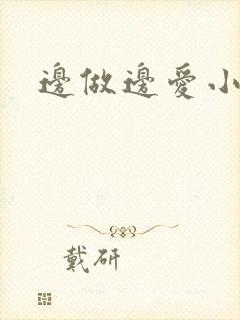 邊做邊愛小
戴研